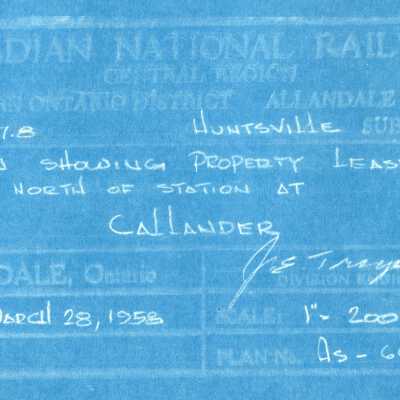 DIAN NATIONAL RAIL
CENTRAL REGION
RN ONTARIO DISTRICT ALLANDALE
7.8 HUNTSVILLE SUB
N SHOWING PROPERTY LEAS
NORTH OF STATION AT
CALLANDER
DALE, Ontario
Division
MARCH 28, 1958 SCALE: 1"- 200
PLAN No. AS - 6